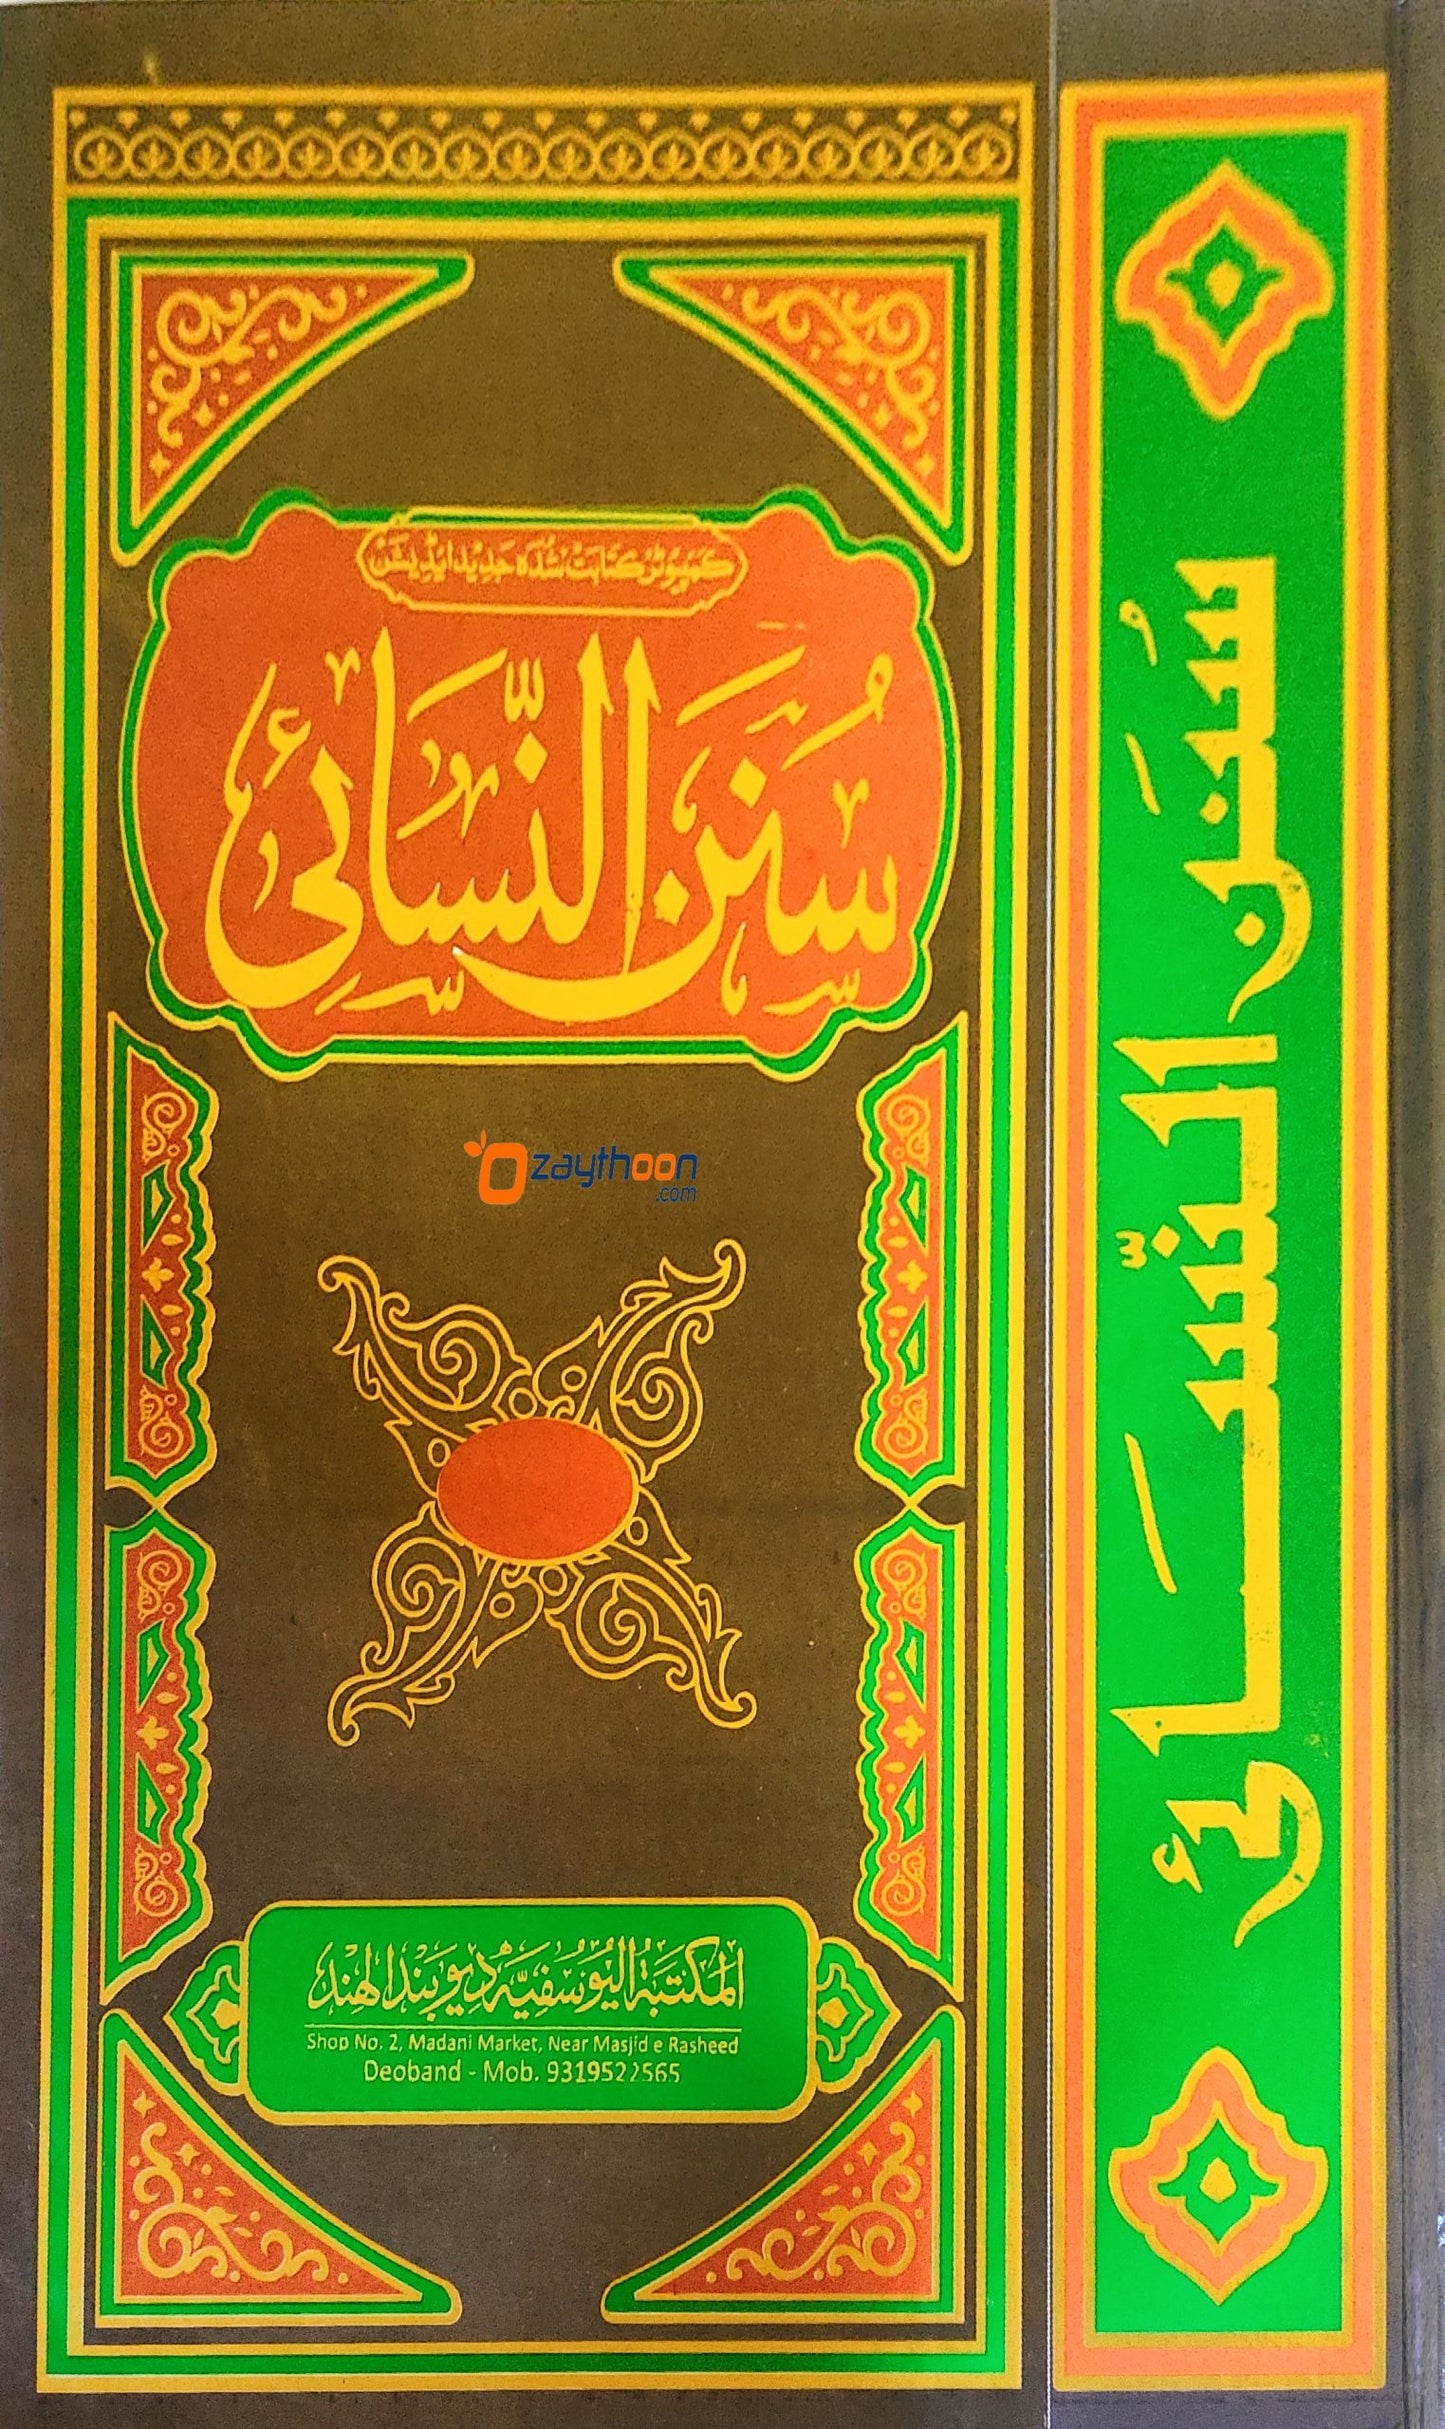 کمپیوٹر کتابت شُدہ جدید ایڈیشن
سُنَنُ النَّسَائِي
zaythoon
.com
المَكتَبَةُ اليُوسُفِيَّه دِيُوبَند الهِند
Shop No. 2, Madani Market, Near Masjid e Rasheed
Deoband - Mob. 9319522565
سُنَن النَّسَائي